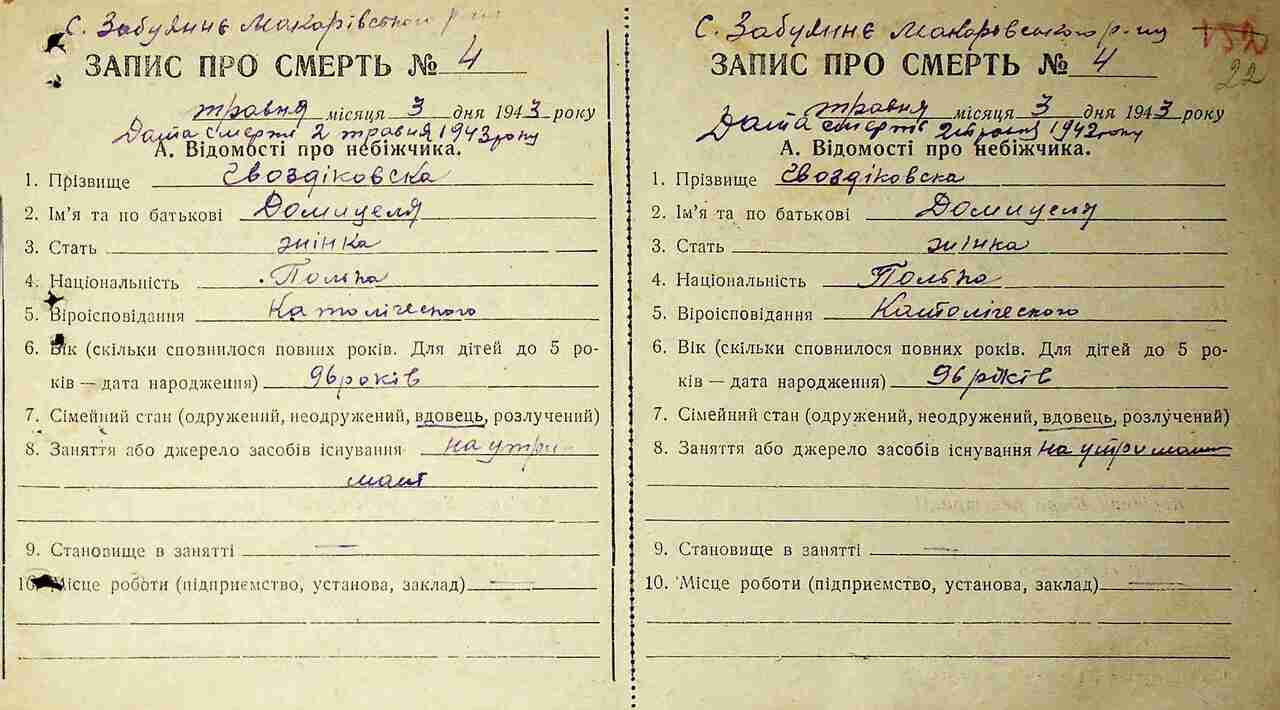 с. Забуянне Макарівського р-ну
ЗАПИС ПРО СМЕРТЬ № 4
травня місяця 3 дня 1943 року
Дата смерті 2 травня 1943 року
А. Відомості про небіжчика.
1. Прізвище Гвоздіковска
2. Ім'я та по батькові Домицеля
3. Стать жінка
4. Національність Полька
5. Віроісповідання Католіческого
6. Вік (скільки сповнилося повних років. Для дітей до 5 ро-
ків — дата народження) 96 років
7. Сімейний стан (одружений, неодружений, вдовець, розлучений)
8. Заняття або джерело засобів існування на утри-
9. Становище в занятті —
10. Місце роботи (підприємство, установа, заклад) —
с. Забуянне Макарівського р-ну
152
22
ЗАПИС ПРО СМЕРТЬ № 4
травня місяця 3 дня 1943 року
Дата смерті 2 травня 1942 року
А. Відомості про небіжчика.
1. Прізвище Гвоздіковска
2. Ім'я та по батькові Домицеля
3. Стать жінка
4. Національність Полька
5. Віроісповідання Католіческого
6. Вік (скільки сповнилося повних років. Для дітей до 5 ро-
ків — дата народження) 96 років
7. Сімейний стан (одружений, неодружений, вдовець, розлучений)
8. Заняття або джерело засобів існування на
9. Становище в занятті —
10. Місце роботи (підприємство, установа, заклад) —